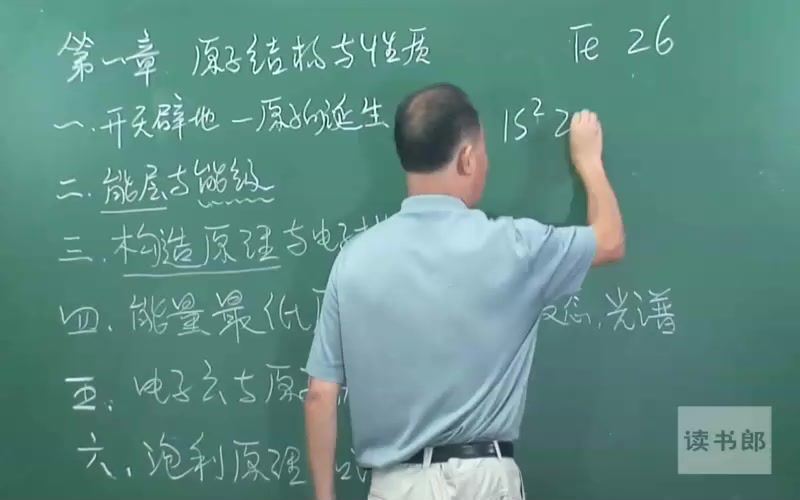 第一章 原子结构与性质
Fe 26
一、开天辟地—原子的诞生
1S² 2
二、能层与能级
三、构造原理与电子
四、能量最低 态、光谱
五、电子云与原子
六、泡利原理
读书郎